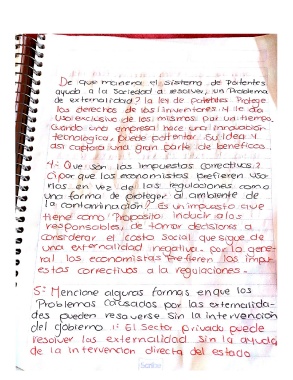 De que manera el Sistema de Patentes
ayuda a la Sociedad a resolver, un Problema
de externalidad? la ley de patentes Protege
los derechos de los inventores y le da
Uso exclusivo de los mismos por un tiempo.
Cuando una empresa hace una innovación
tecnológica, puede patentar Su Idea y
así captara una gran parte de beneficos.
4: Que son los impuestos correctivos?
¿por que los economistas prefieren usar
los en vez de las regulaciones como
una forma de proteger al ambiente de
la contaminación? Es un impuesto que
tiene como Proposito inducir a los
responsables, de tomar decisiones a
considerar el costo Social que sigue de
una externalidad negativa. por lo gene-
ral los economistas Prefieren los impu-
estos correctivos a la regulaciones.
5: Mencione algunas formas en que los
Problemas causados por las externalida-
des pueden resolverse Sin la intervención
del gobierno 1: El Sector privado puede
resolver las externalidad Sin la ayuda
de la intervención directa del estado